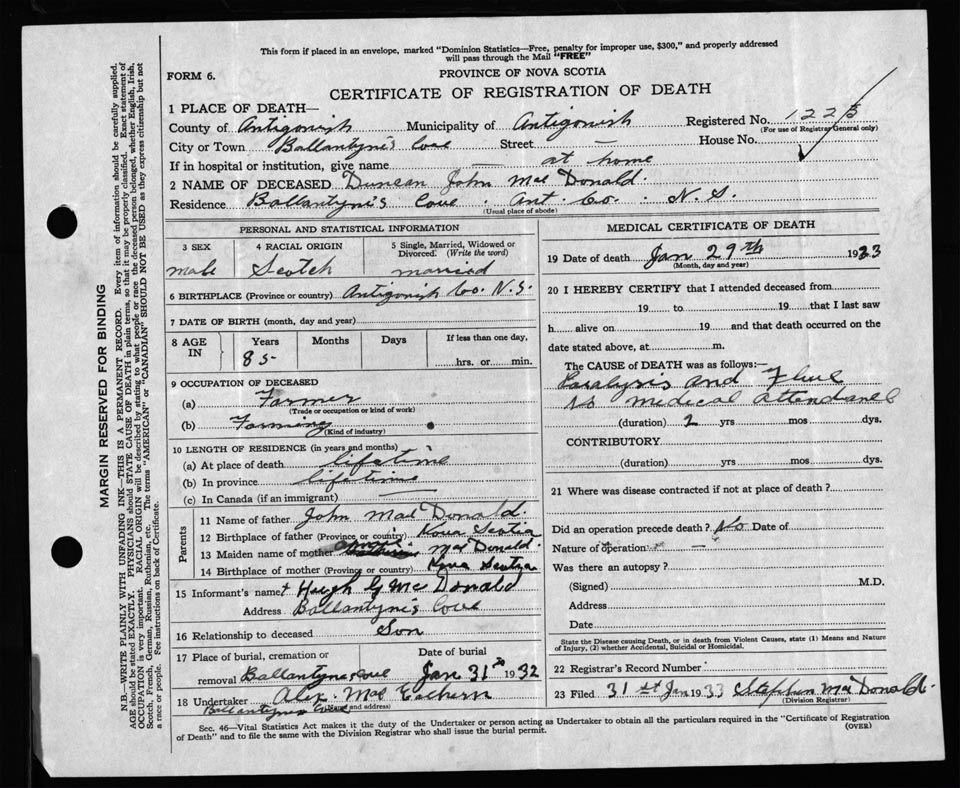 This form if placed in an envelope, marked "Dominion Statistics—Free, penalty for improper use, $300," and properly addressed
will pass through the Mail "FREE"
FORM 6.
PROVINCE OF NOVA SCOTIA
CERTIFICATE OF REGISTRATION OF DEATH
1 PLACE OF DEATH—
County of Antigonish Municipality of Antigonish Registered No. 1225
(For use of Registrar General only)
City or Town Ballantyne's Cove Street — House No.
If in hospital or institution, give name at home
2 NAME OF DECEASED Duncan John MacDonald
Residence Ballantyne's Cove Ant. Co. N.S.
(Usual place of abode)
PERSONAL AND STATISTICAL INFORMATION
3 SEX 4 RACIAL ORIGIN 5 Single, Married, Widowed or
Divorced. (Write the word)
male Scotch married
6 BIRTHPLACE (Province or country) Antigonish Co. N.S.
7 DATE OF BIRTH (month, day and year)
8 AGE IN Years Months Days If less than one day,
85 hrs. or min.
9 OCCUPATION OF DECEASED
(a) Farmer
(Trade or occupation or kind of work)
(b) Farming
(Kind of industry)
10 LENGTH OF RESIDENCE (in years and months)
(a) At place of death lifetime
(b) In province lifetime
(c) In Canada (if an immigrant) —
Parents
11 Name of father John MacDonald
12 Birthplace of father (Province or country) Nova Scotia
13 Maiden name of mother MacDonald
14 Birthplace of mother (Province or country) Nova Scotia
15 Informant's name Hugh G McDonald
Address Ballantyne's Cove
16 Relationship to deceased Son
17 Place of burial, cremation or Date of burial
removal Ballantynes Cove Jan 31st 1932
18 Undertaker Alex. MacEachern
(Name and address)
Ballantynes Cove
MEDICAL CERTIFICATE OF DEATH
19 Date of death Jan 29th 1933
(Month, day and year)
20 I HEREBY CERTIFY that I attended deceased from
19 to 19 that I last saw
h alive on 19 and that death occurred on the
date stated above, at m.
The CAUSE OF DEATH was as follows:—
Paralysis and Flue
no medical attendance
(duration) 2 yrs mos dys.
CONTRIBUTORY
(duration) yrs mos dys.
21 Where was disease contracted if not at place of death?
Did an operation precede death? No Date of
Nature of operation —
Was there an autopsy?
(Signed) M.D.
Address
Date
State the Disease causing Death, or in death from Violent Causes, state (1) Means and Nature
of Injury, (2) whether Accidental, Suicidal or Homicidal.
22 Registrar's Record Number
23 Filed 31st Jan 1933 Stephen MacDonald.
(Division Registrar)
Sec. 46—Vital Statistics Act makes it the duty of the Undertaker or person acting as Undertaker to obtain all the particulars required in the "Certificate of Registration
of Death" and to file the same with the Division Registrar who shall issue the burial permit. (OVER)
MARGIN RESERVED FOR BINDING
N.B.—WRITE PLAINLY WITH UNFADING INK—THIS IS A PERMANENT RECORD. Every item of information should be carefully supplied.
AGE should be stated EXACTLY. PHYSICIANS should STATE CAUSE OF DEATH in plain terms, so that it may be properly classified. Exact statement of
OCCUPATION is very important. RACIAL ORIGIN will be described by stating to what people or race the deceased person belonged, whether English, Irish,
Scotch, French, German, Russian, Ruthenian, etc. The terms "AMERICAN" or "CANADIAN" SHOULD NOT BE USED as they express citizenship but not
a race or people. See instructions on back of Certificate.